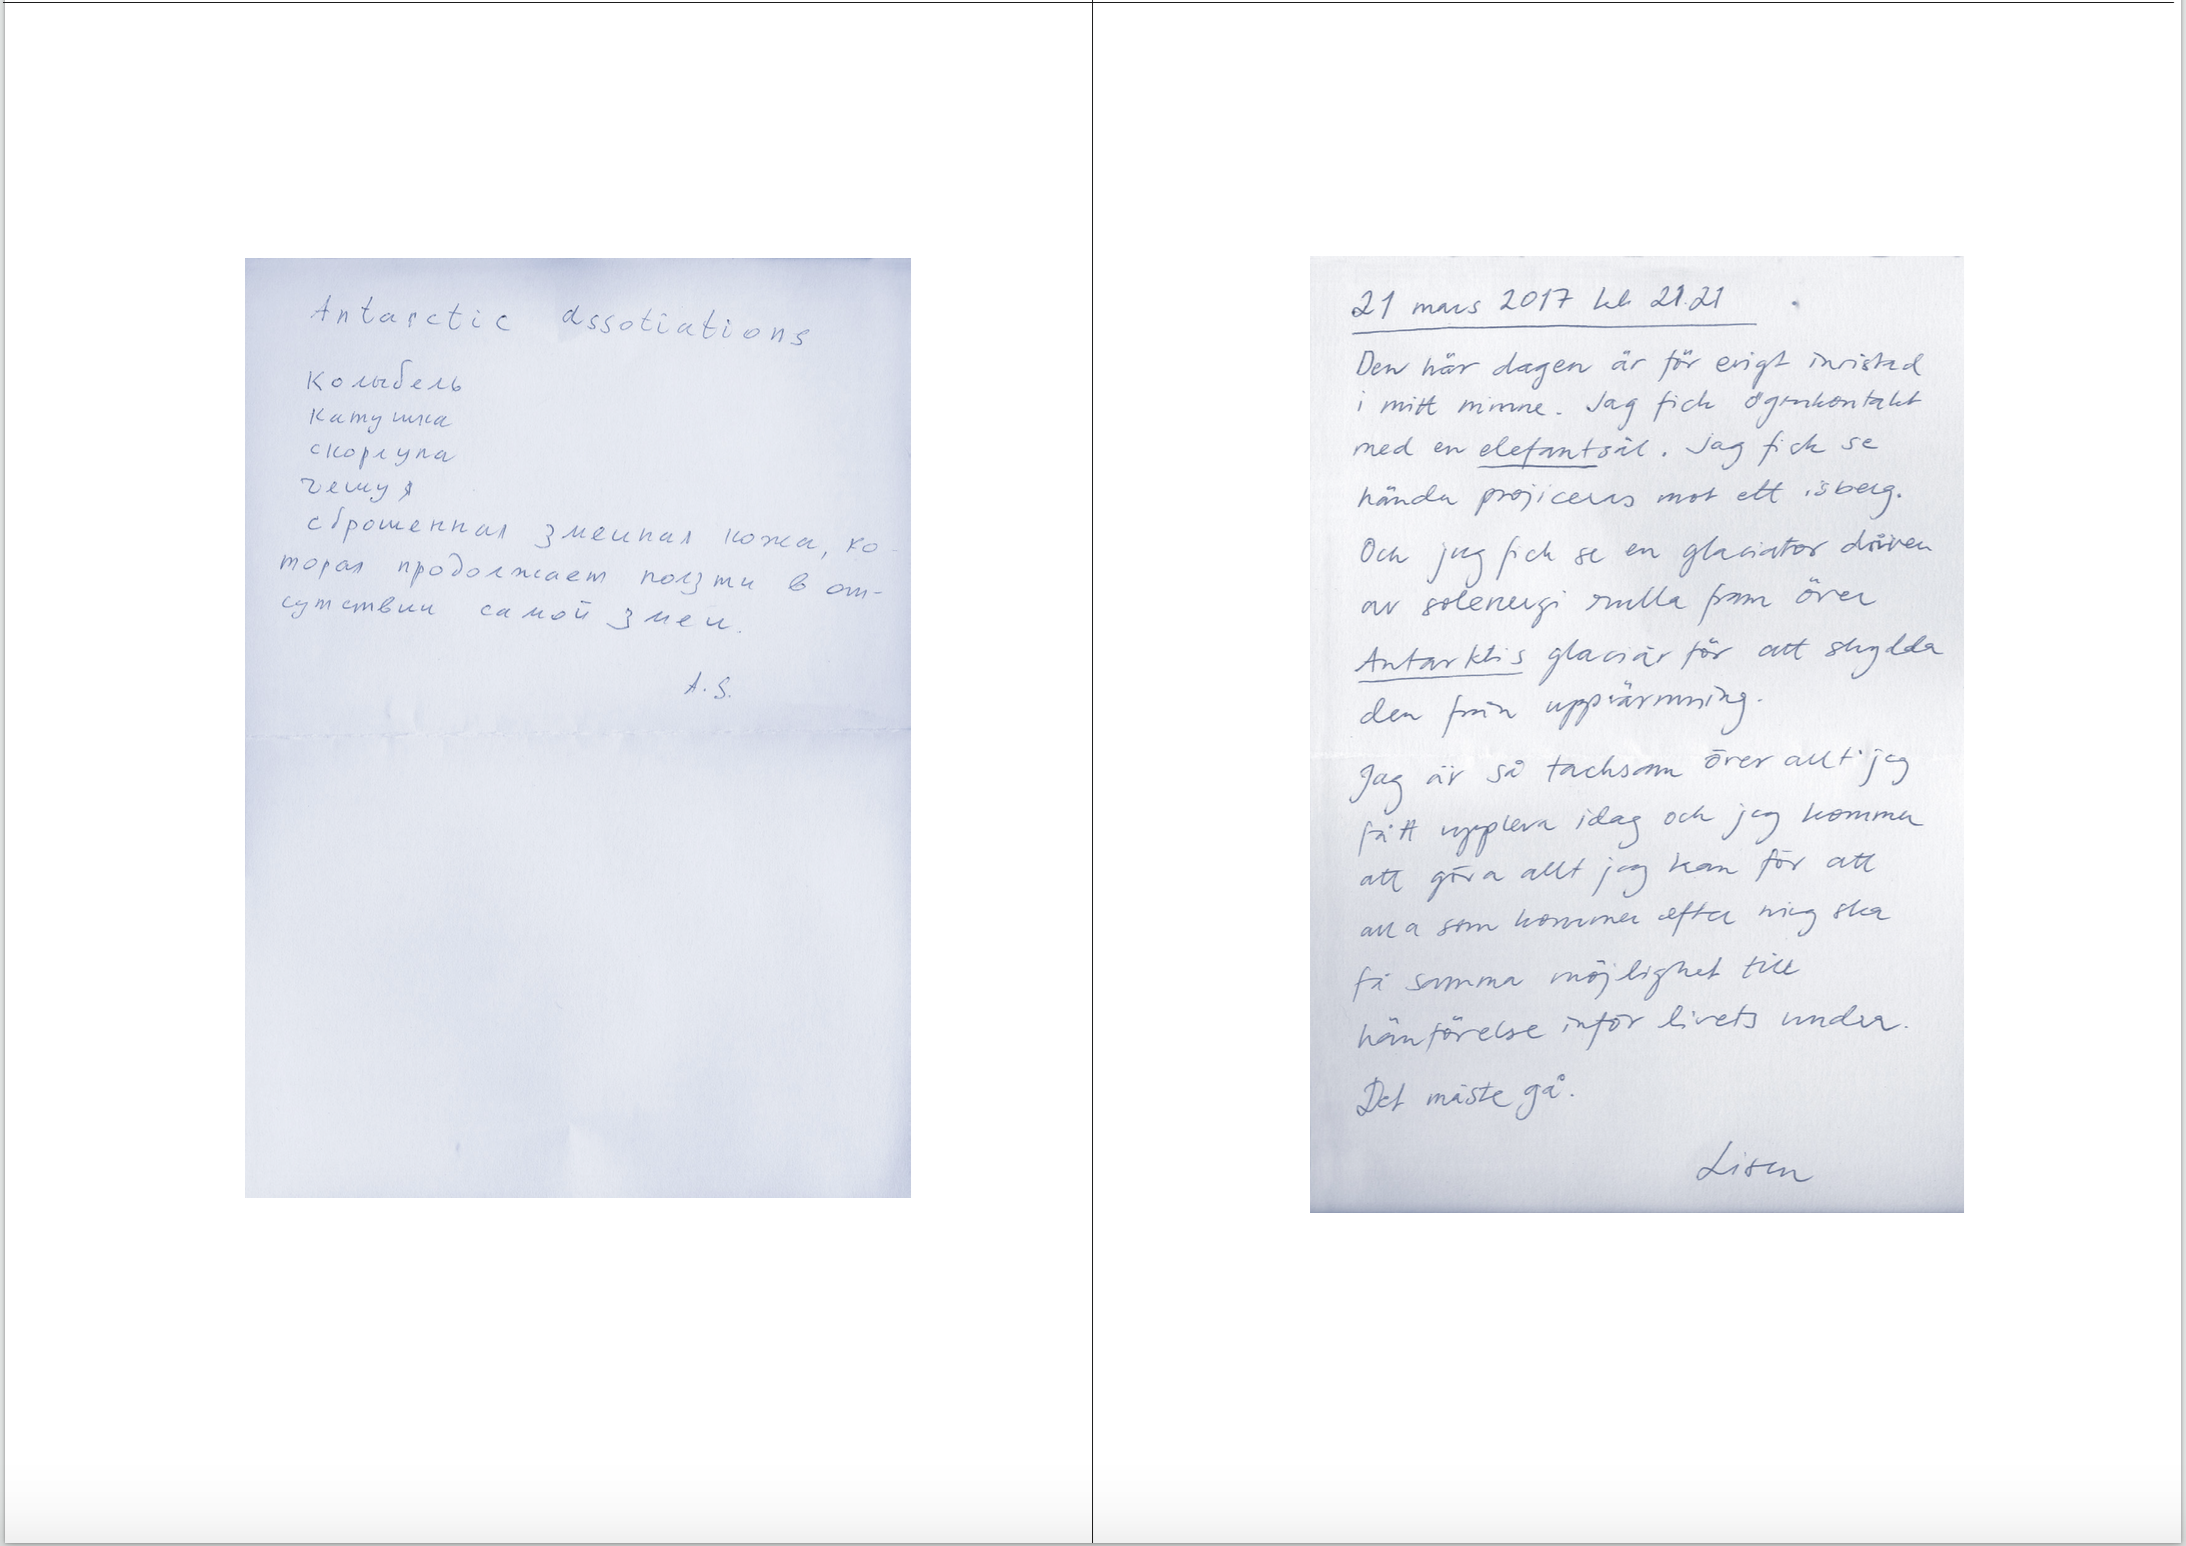 Antarctic assotiations
колыбель
катушка
скорлупа
чешуя
сброшенная змеиная кожа, ко-
торая продолжает ползти в от-
сутствии самой змеи.
A.S.
21 mars 2017 kl 21.21
Den här dagen är för evigt inristad
i mitt minne. Jag fick ögonkontakt
med en elefantsäl. Jag fick se
händer projiceras mot ett isberg.
Och jag fick se en glaciator driven
av solenergi rulla fram över
Antarktis glaciär för att skydda
den från uppvärmning.
Jag är så tacksam över allt jag
fått uppleva idag och jag kommer
att göra allt jag kan för att
alla som kommer efter mig ska
få samma möjlighet till
hänförelse inför livets under.
Det måste gå.
Lisen